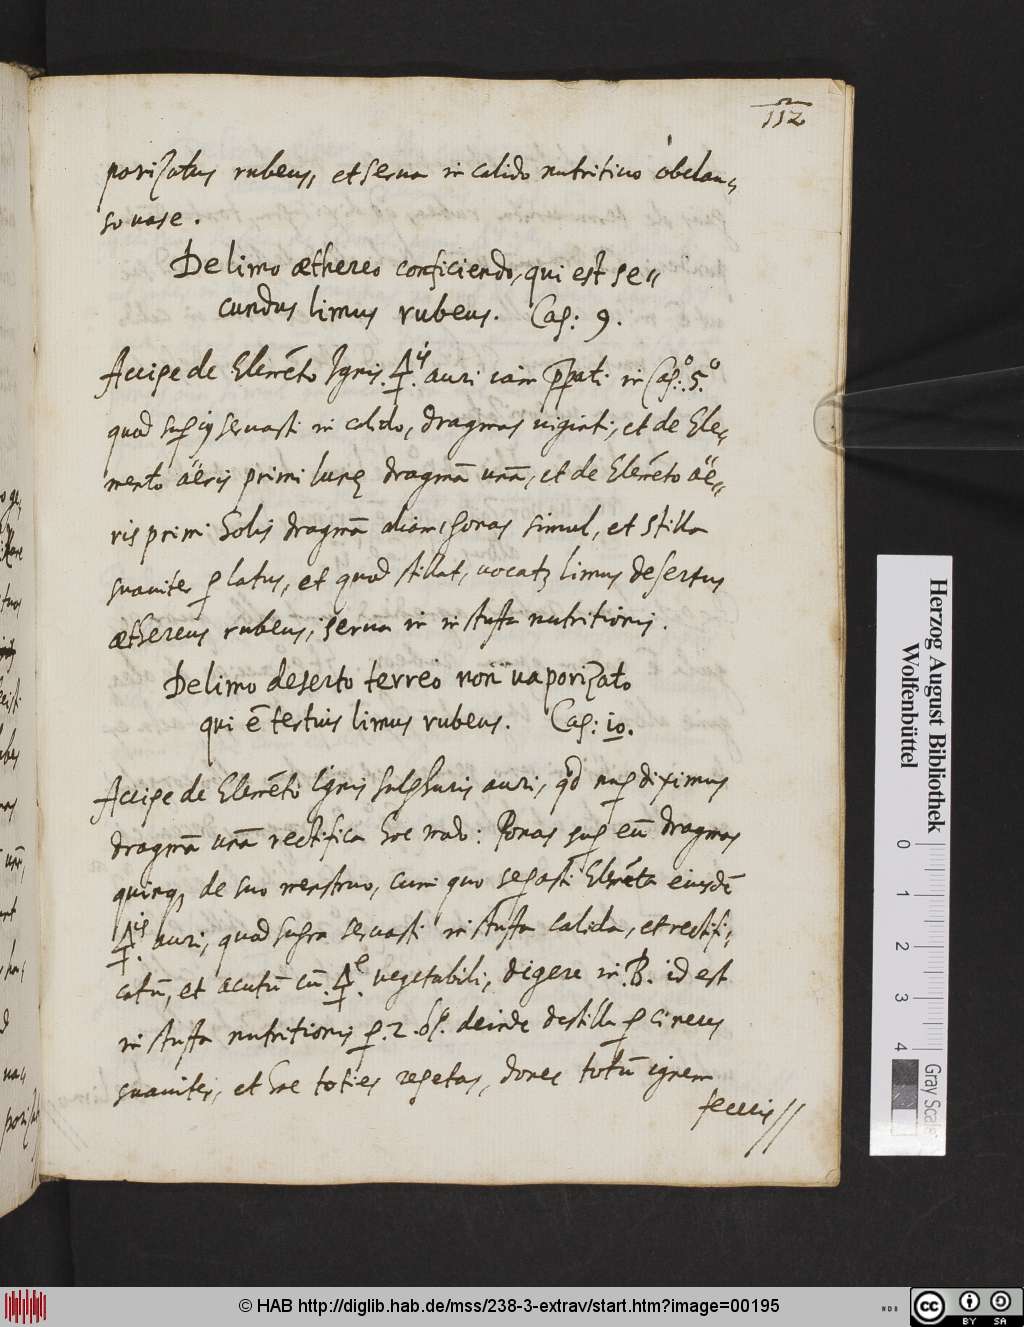 112
porizatus rubeus, et serua in calido nutritiuo obclau„
so uase.
De limo æthereo conficiendo, qui est se„
cundus limus rubeus. Cap: 9.
Accipe de Elemẽto Ignis 🜍is auri iam ꝑpati in Cap:º 5.º
quod supius seruasti in calido, dragmas uiginti, et de Ele„
mento aëris primi lunę dragmã unã, et de Elemẽto aë„
ris primi Solis dragmã aliam, ponas simul, et stilla
suauiter ꝑ latus, et quod stillat, uocatꝫ limus desertus
æthereus rubeus, serua in in stuffa nutritionis.
De limo deserto terreo non uaporizato
qui ẽ tertius limus rubeus. Cap: 10.
Accipe de Elemẽti Ignis sulphuris auri, qd nuꝑ diximus
dragmã unã rectifica hoc modo: Ponas sup eũ dragmas
quinqꝫ de suo menstruo, cum quo sepasti Elemẽta eiusdẽ
🜍is auri, quod supra seruasti in stuffa calida, et rectifi„
catũ, et acutũ cũ 🜍e uegetabili, digere in .B. id est
in stuffa nutritionis ꝑ .2. deinde destilla ꝑ cineres
suauiter, et hoc toties repetas, donec totũ ignem
feceris//
Herzog August Bibliothek
Wolfenbüttel
0 1 2 3 4
Gray Scale
© HAB http://diglib.hab.de/mss/238-3-extrav/start.htm?image=00195
cc BY SA